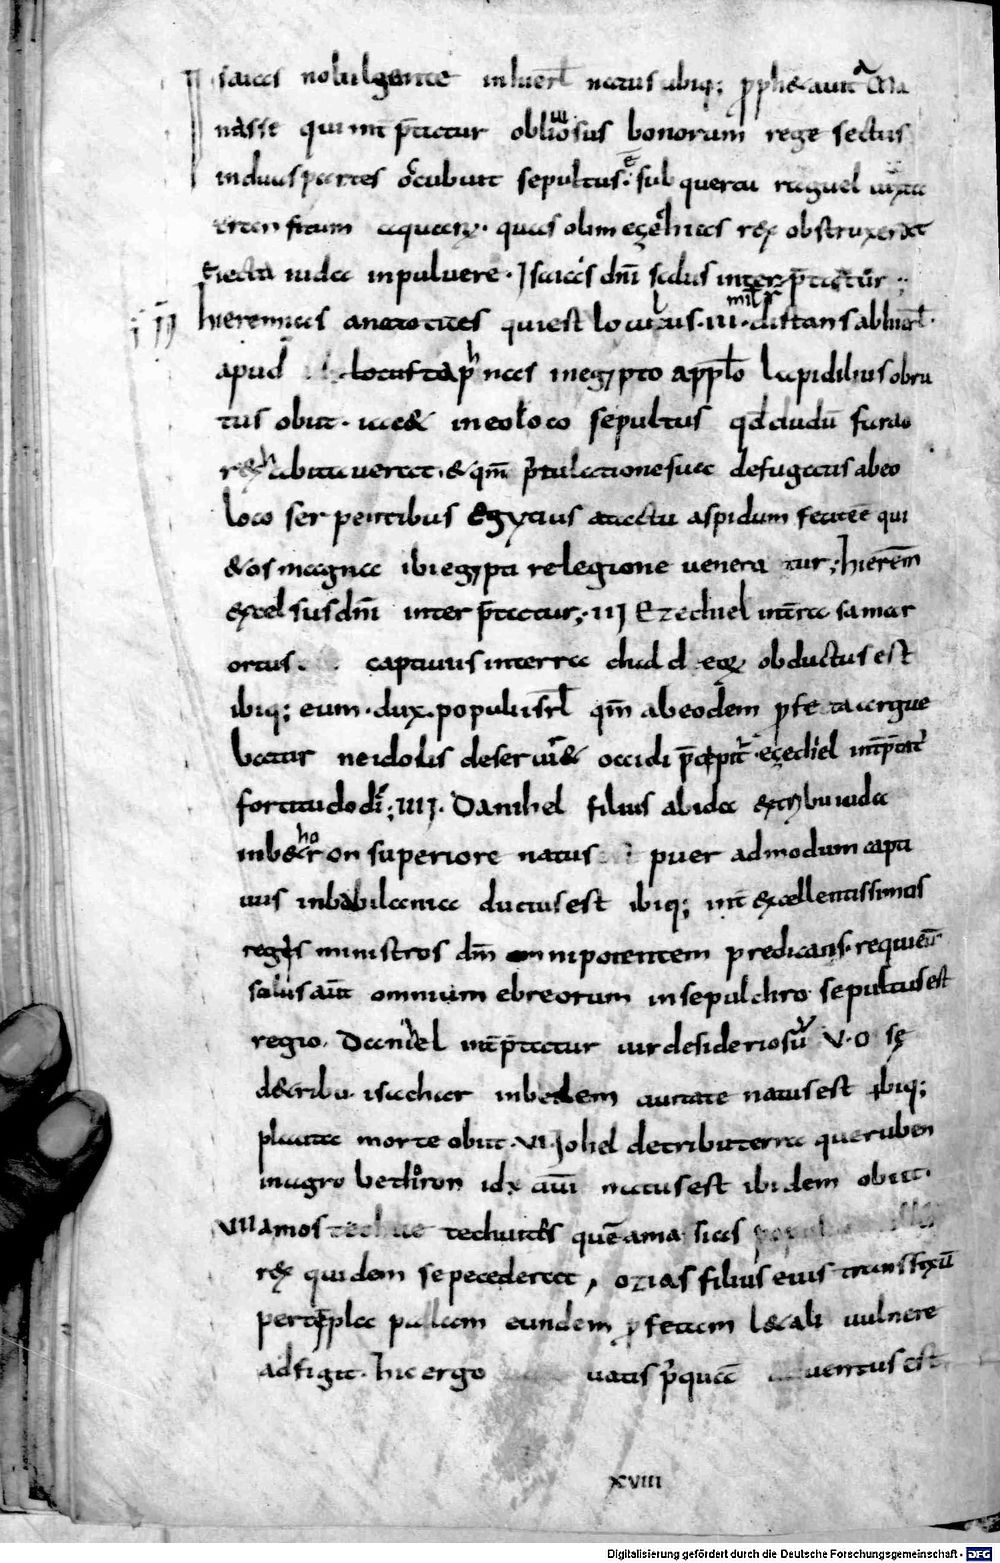 isaias nobulgente inhierl natus ibiq; pphetauit Ma
nasse qui int ptatur obliuiosus bonorum rege sectus
induas partes occubuit sepultus ē sub quercu raguel iuxta
 aquarum quas olim ezechias rex obstruxerat
iecta iudea inpuluere. Isaias dni salus interptatur;
ij hieremias anatotites qui est locus uius .iii. mil distans abhierl.
apud inegypto applo lapidibus obru
tus obiit. iacet ineo loco sepultus qd dudū farao
rex habitauerat. & qm ptulatione sua defugatus abeo
loco serpentibus Egyptius aspidum qui
&os magna ibi egypti relegione uenera tur; hierem
excelsus dni inter ptatur; iij Ezechiel interra samar
ortus. captiuus interra chald obductus est
ibiq; eum. dux. populi isrl qm abeodem pfeta argue
batur ne idolis deseruir& occidi pcepit. ezechiel intptat
fortitudo di; iiij. Danihel filius abida extribu iuda
inbethoron superiore natus puer admodum capti
uus inbabilonia ductus est ibiq; int excellentissimos
regis ministros dm omnipotentem predicans. requieuit
salus aut omnium ebreorum insepulchro sepultus est
regio. Daniel intptatur uir desideriosū V. Osę
detribu isachar inbelem ciuitate natus est ibiq;
placita morte obiit. VI. Johel detribu terra queruben
inagro bethoron idx aui natus est ibidem obiit.
VII amos techue techuites quē amasias
rex quidem sepecederat, ozias filius eius transfixū
pertepla eundem pfetam letali uulnere
adfigit. hic ergo uatis pquā aduentus est
XVIII
Digitalisierung gefördert durch die Deutsche Forschungsgemeinschaft - DFG